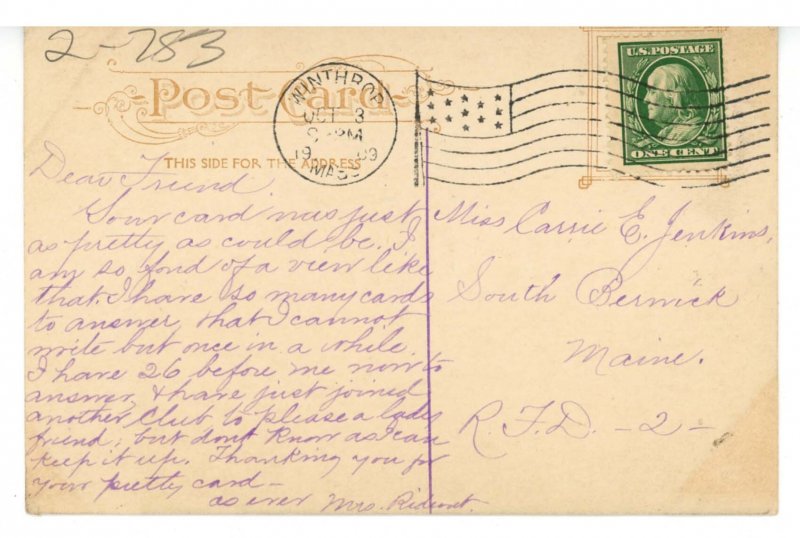 2-783
Post Card
THIS SIDE FOR THE ADDRESS
WINTHROP
OCT 3
PM
1909
MASS
U.S. POSTAGE
ONE CENT
Dear Friend.
Your card was just
as pretty as could be. I
am so fond of a view like
that. I have so many cards
to answer, that I cannot
write but once in a while.
I have 26 before me now to
answer, & have just joined
another Club to please a lady
friend, but dont know as I can
keep it up. Thanking you for
your pretty card—
as ever Mrs. Rideout.
Miss Carrie E. Jenkins,
South Berwick
Maine.
R.F.D. -2-